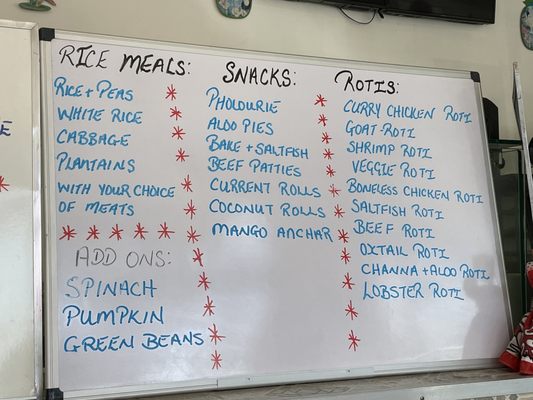 RICE MEALS:
RICE + PEAS
WHITE RICE
CABBAGE
PLANTAINS
WITH YOUR CHOICE
OF MEATS
ADD ONS:
SPINACH
PUMPKIN
GREEN BEANS
SNACKS:
PHOLOURIE
ALOO PIES
BAKE + SALTFISH
BEEF PATTIES
CURRENT ROLLS
COCONUT ROLLS
MANGO ANCHAR
ROTIS:
CURRY CHICKEN ROTI
GOAT ROTI
SHRIMP ROTI
VEGGIE ROTI
BONELESS CHICKEN ROTI
SALTFISH ROTI
BEEF ROTI
OXTAIL ROTI
CHANNA + ALOO ROTI
LOBSTER ROTI